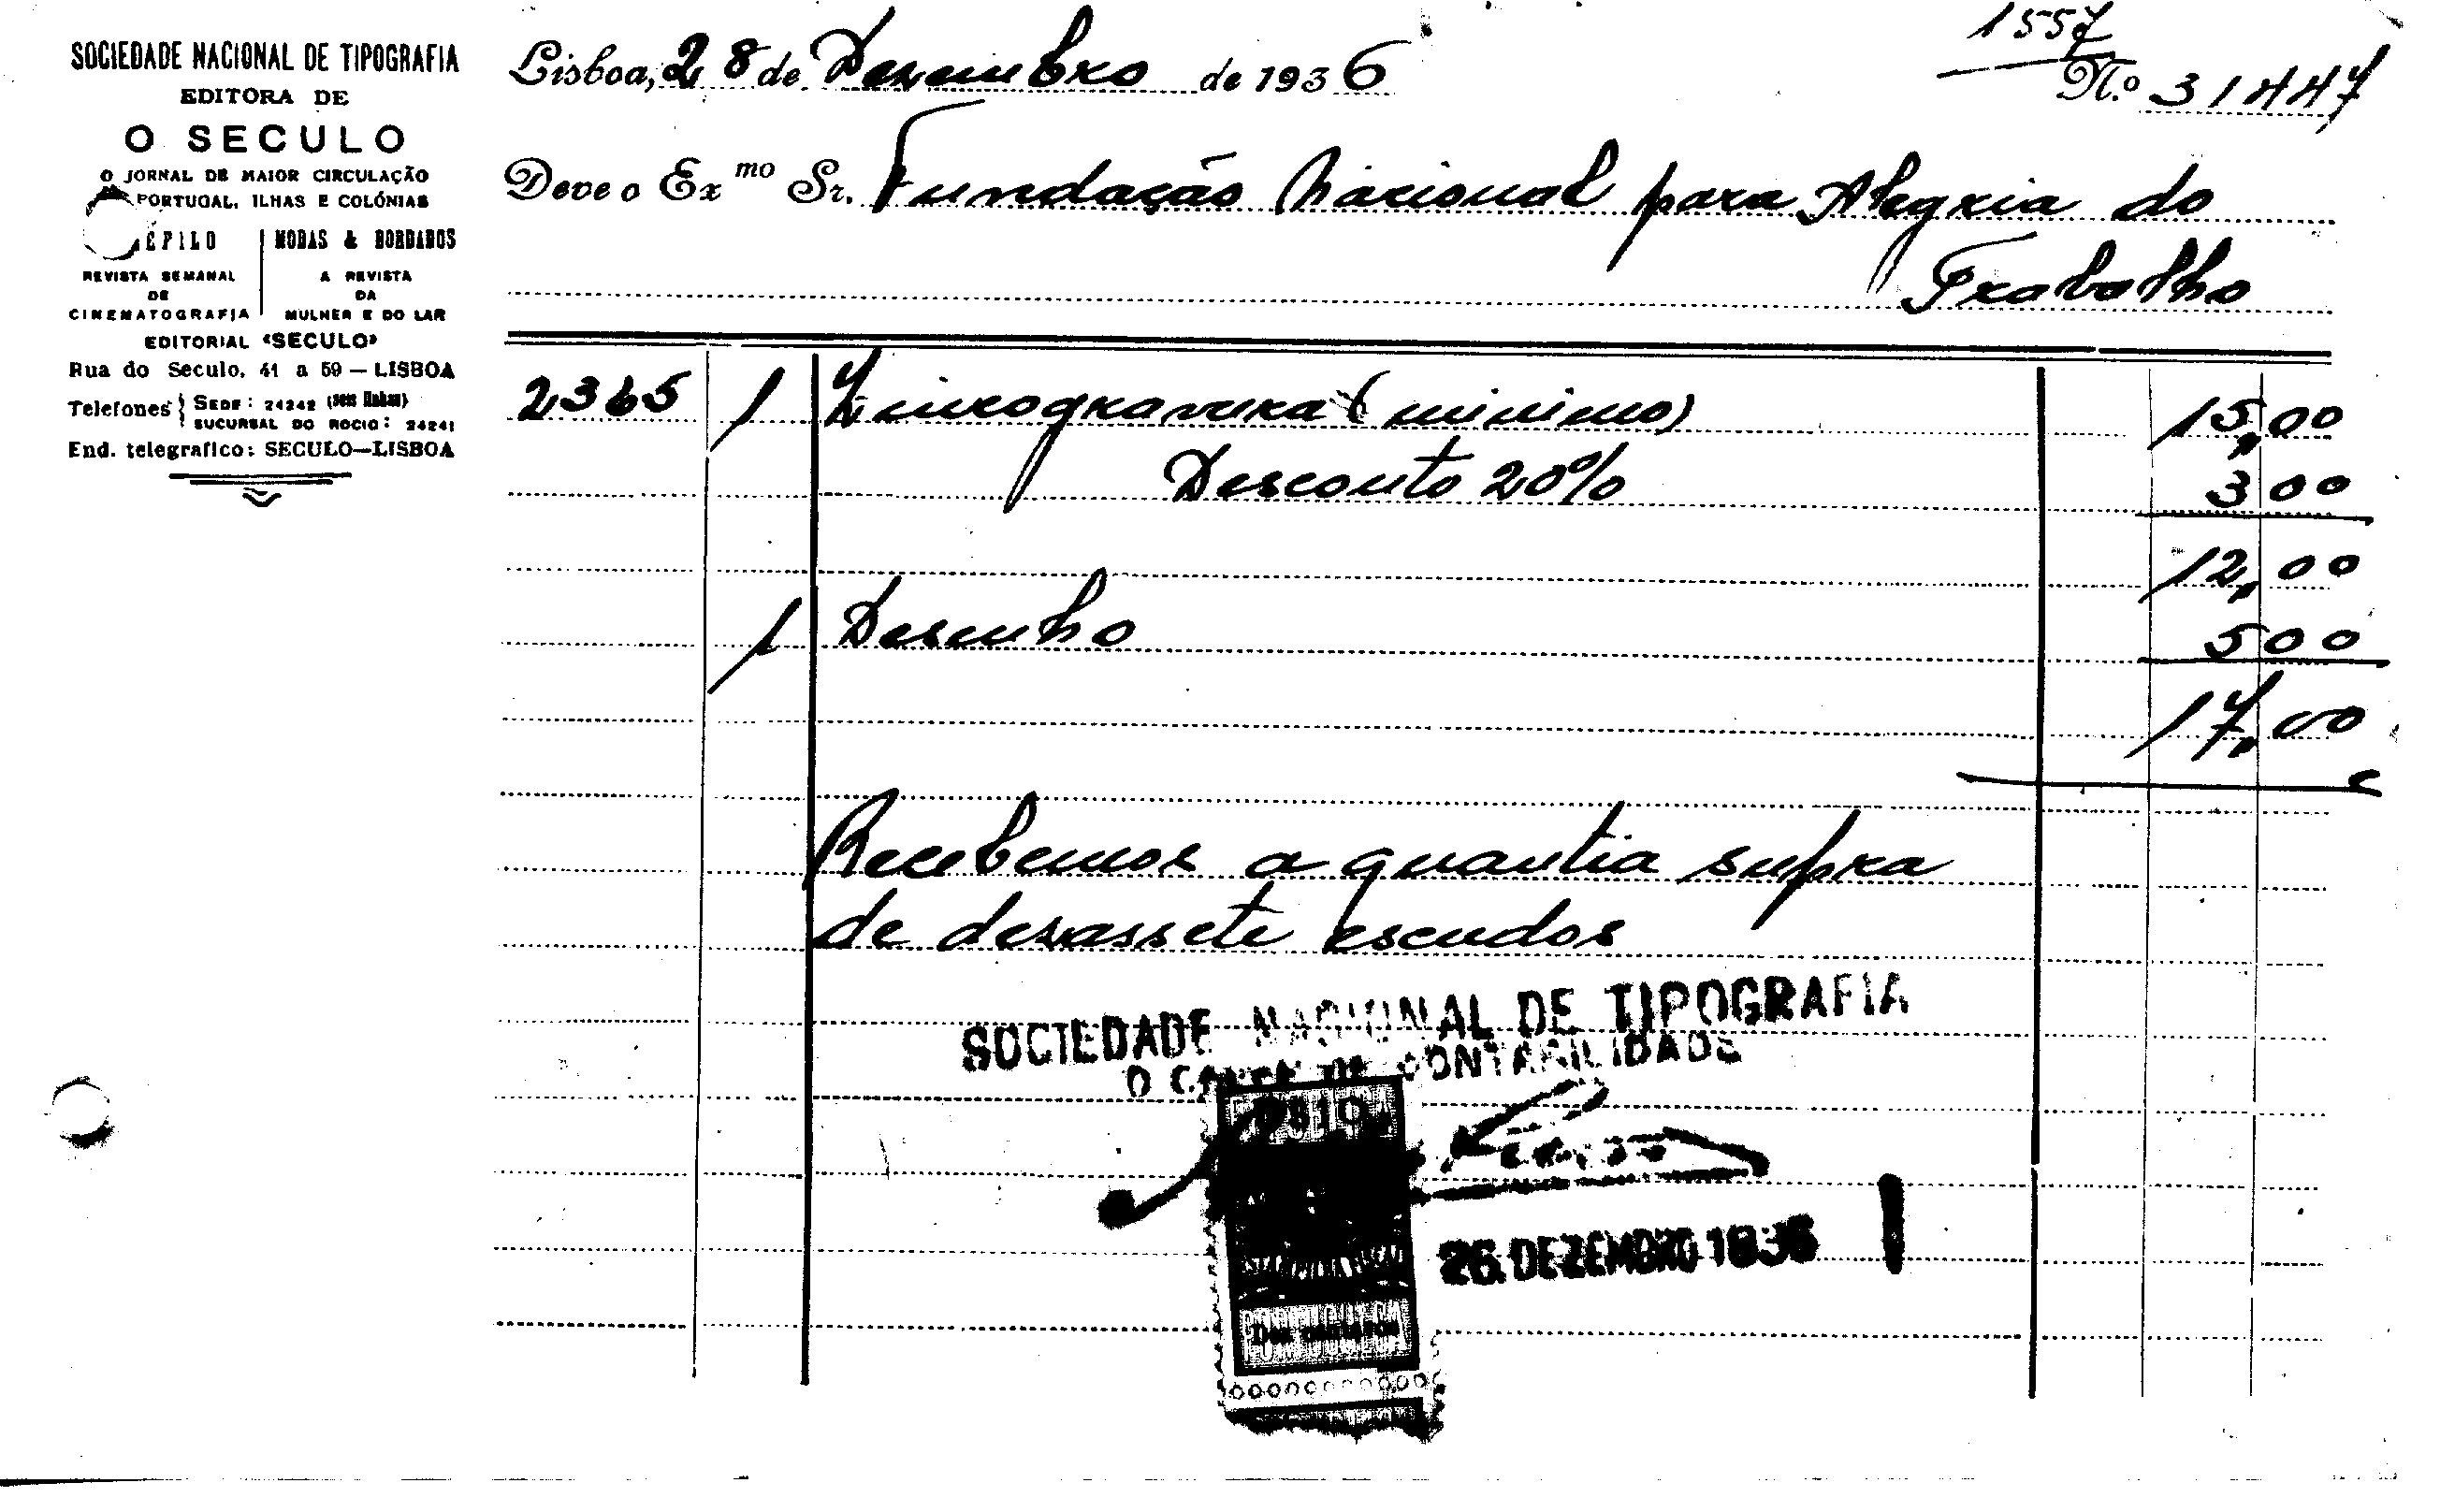 SOCIEDADE NACIONAL DE TIPOGRAFIA
EDITORA DE
O SECULO
O JORNAL DE MAIOR CIRCULAÇÃO
PORTUGAL, ILHAS E COLÓNIAS
MODAS & BORDADOS
REVISTA SEMANAL
DE
CINEMATOGRAFIA
A REVISTA
DA
MULHER E DO LAR
EDITORIAL «SECULO»
Rua do Seculo, 41 a 59 — LISBOA
Telefones { SEDE: 24242 (seis linhas)
SUCURSAL DO ROCIO: 24241
End. telegrafico: SECULO—LISBOA
1557
Lisboa, 28 de Dezembro de 1936
N.º 31447
Deve o Ex mo Sr. Fundação Nacional para Alegria do
Trabalho
2365 1 Zincogravura (minimo) 15,00
Desconto 20% 3 00
12,00
1 Desenho 5 00
17,00
Recebemos a quantia supra
de desassete escudos
SOCIEDADE NACIONAL DE TIPOGRAFIA
O CHEFE DA CONTABILIDADE
26 DEZEMBRO 1936
Dez centavos